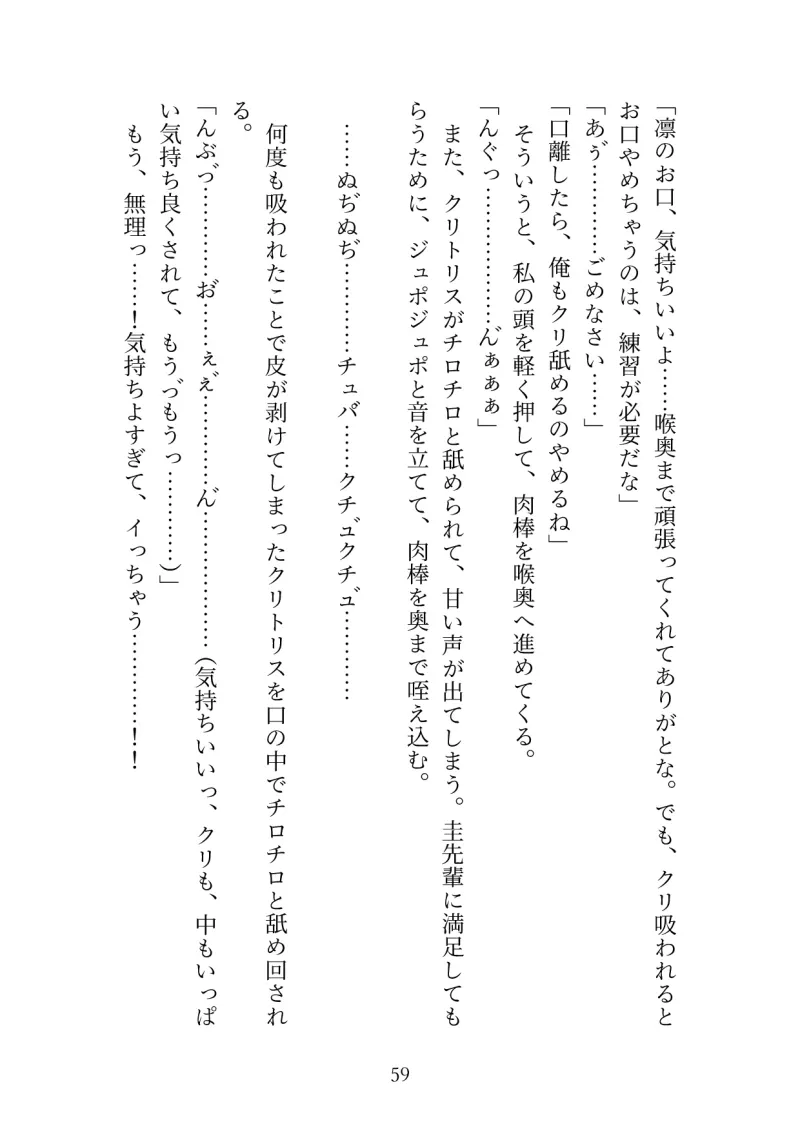 「凛のお口、気持ちいいよ……喉奥まで頑張ってくれてありがとな。でも、クリ吸われると
お口やめちゃうのは、練習が必要だな」
「あゔ…………ごめなさい……」
「口離したら、俺もクリ舐めるのやめるね」
そういうと、私の頭を軽く押して、肉棒を喉奥へ進めてくる。
「んぐっ………………ん゙ぁぁぁ」
また、クリトリスがチロチロと舐められて、甘い声が出てしまう。圭先輩に満足しても
らうために、ジュポジュポと音を立てて、肉棒を奥まで咥え込む。
……ぬぢぬぢ…………チュバ……クチュ゙クチュ゙…………
何度も吸われたことで皮が剥けてしまったクリトリスを口の中でチロチロと舐め回され
る。
「んぶっ゙…………お゙……ぇぇ゙…………ん゙………………(気持ちいいっ、クリも、中もいっぱ
い気持ち良くされて、もうづもうっ…………)」
もう、無理っ……！気持ちよすぎて、イっちゃう…………！！
59